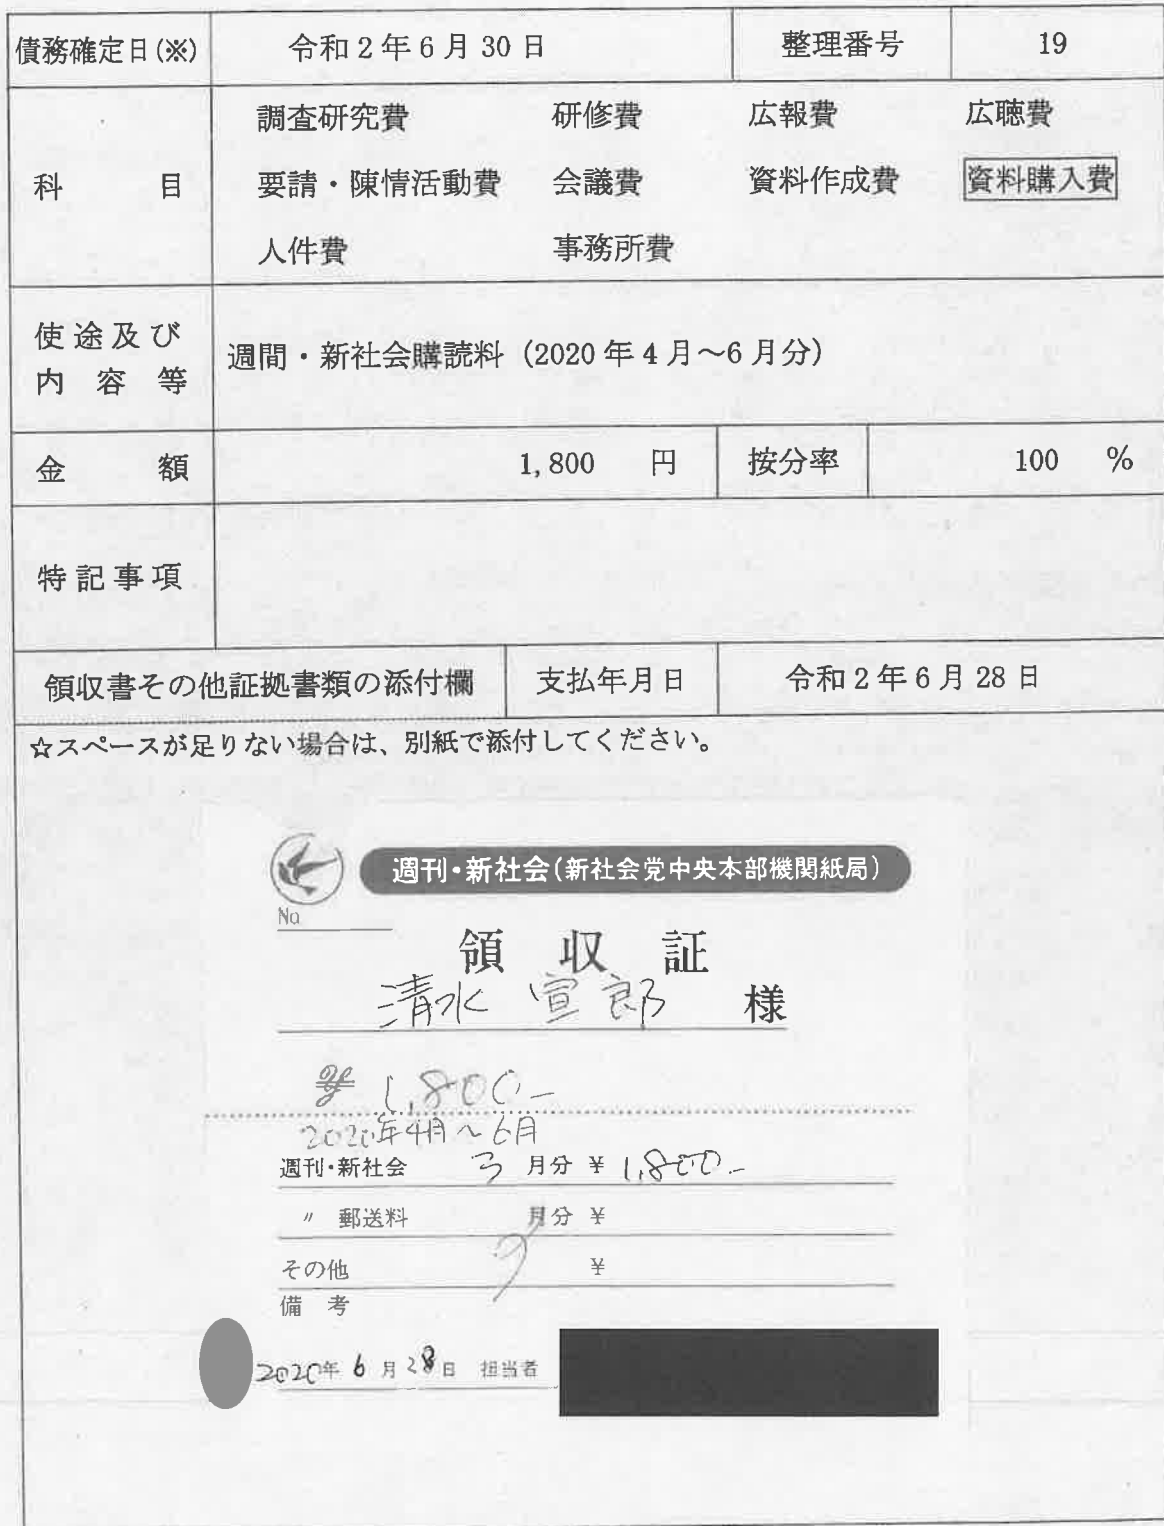 債務確定日(※) 令和2年6月30日 整理番号 19
科目 調査研究費 研修費 広報費 広聴費
要請・陳情活動費 会議費 資料作成費 資料購入費
人件費 事務所費
使途及び内容等 週間・新社会購読料（2020年4月～6月分）
金額 1,800 円 按分率 100 %
特記事項
領収書その他証拠書類の添付欄 支払年月日 令和2年6月28日
☆スペースが足りない場合は、別紙で添付してください。
週刊・新社会(新社会党中央本部機関紙局)
No
領収証
清水宣郎 様
¥ 1,800-
2020年4月～6月
週刊・新社会 3 月分 ¥ 1,800-
〃 郵送料 月分 ¥
その他 ¥
備考
2020年6月28日 担当者